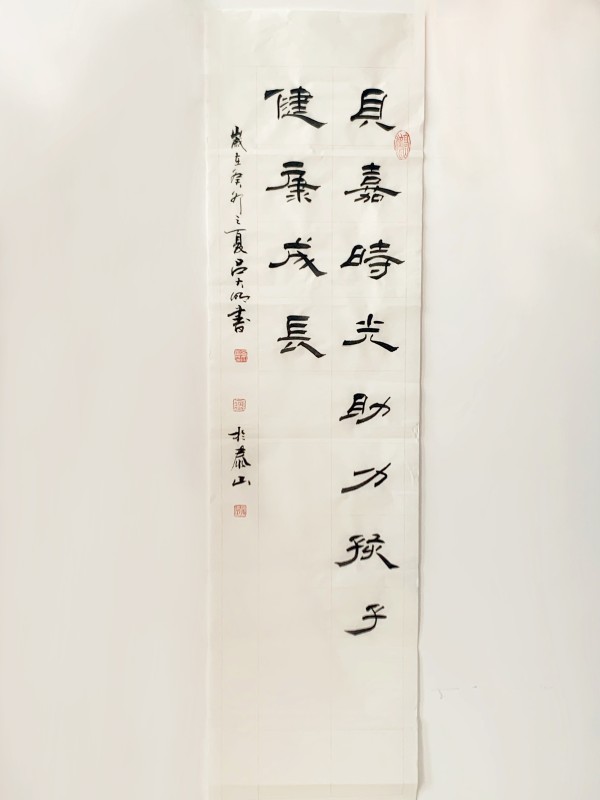 貝嘉時光助力孩子
健康成長
歲在癸卯之夏吕大明書
於泰山